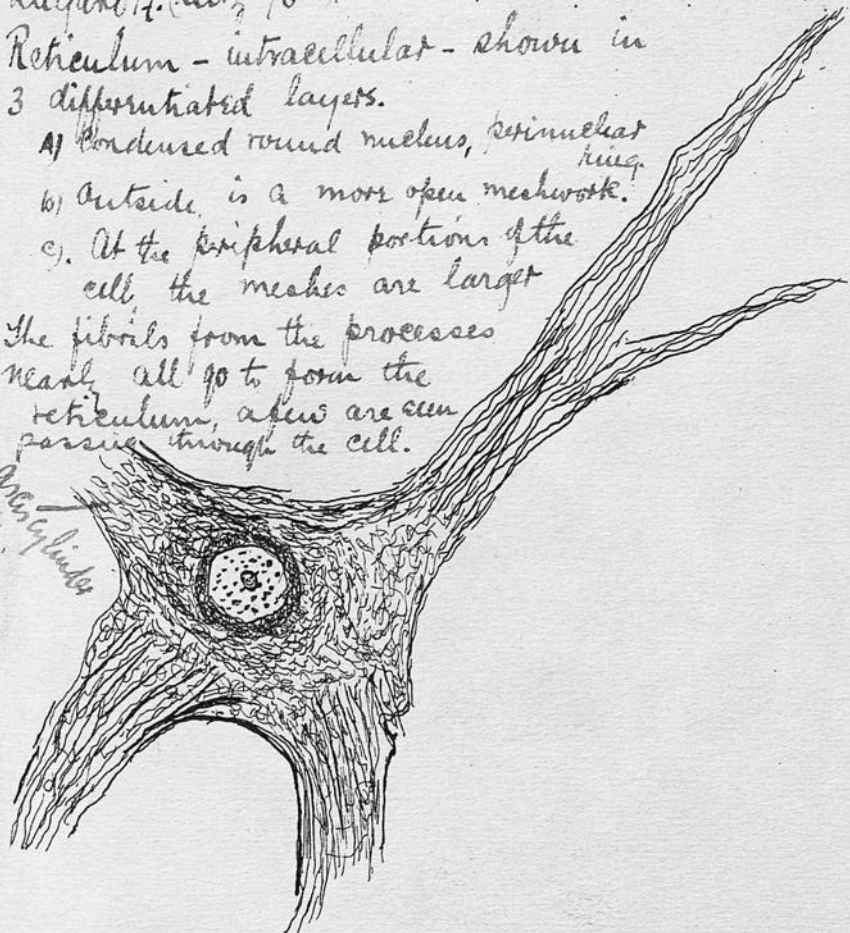 Reticulum – intracellular – shown in
3 differentiated layers.
A) Condensed round nucleus, perinuclear
ring.
b) Outside, is a more open meshwork.
c). At the peripheral portions of the
cell, the meshes are larger
The fibrils from the processes
nearly all go to form the
reticulum, a few are seen
passing through the cell.
axis cylinder